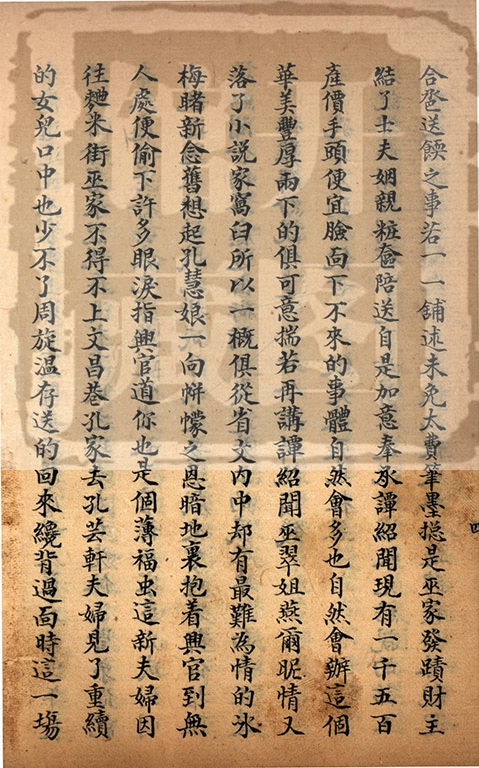 合卺送饌之事若一一鋪述未免太費筆墨捴是巫家發蹟財主
結了士夫姻親粧奩陪送自是加意奉承譚紹聞現有一千五百
產價手頭便宜臉面下不來的事體自然會多也自然會辦這個
華美豐厚兩下的俱可意揣若再講譚紹聞巫翠姐燕爾昵情又
落了小説家窩臼所以一概俱從省文內中却有最難為情的氷
梅睹新念舊想起孔慧娘一向帡幪之恩暗地裏抱着興官到無
人處便偷下許多眼淚指興官道你也是個薄福虫這新夫婦因
往麯米街巫家不得不上文昌巷孔家去孔芸軒夫婦見了重續
的女兒口中也少不了周旋温存送的回來纔背過面時這一塲